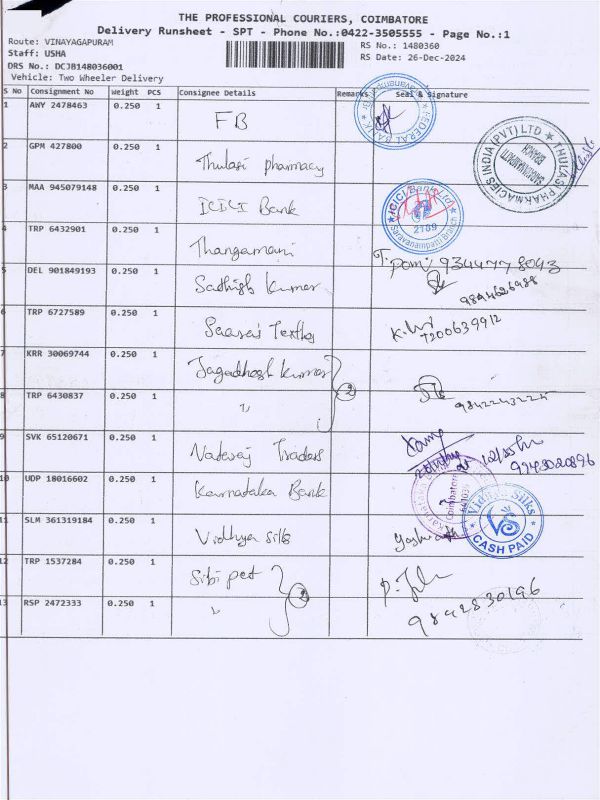 THE PROFESSIONAL COURIERS, COIMBATORE
Delivery Runsheet - SPT - Phone No.:0422-3505555 - Page No.:1
Route: VINAYAGAPURAM
RS No.: 1480360
Staff: USHA
RS Date: 26-Dec-2024
DRS No.: DCJB148036001
Vehicle: Two Wheeler Delivery
S No Consignment No Weight PCS Consignee Details Remarks Seal & Signature
1 AWY 2478463 0.250 1 FB
FEDERAL BANK
2 GPM 427800 0.250 1 Thulasi pharmacy
THULASI PHARMACIES INDIA (PVT) LTD
SARAVANAMPATTI BRANCH
3 MAA 945079148 0.250 1 ICICI Bank
ICICI Bank Ltd
2109
Saravanampatti Branch
4 TRP 6432901 0.250 1 Thangamani
5 DEL 901849193 0.250 1 Sathish Kumar
6 TRP 6727589 0.250 1
7 KRR 30069744 0.250 1 Kumar
8 TRP 6430837 0.250 1 " 2
9 SVK 65120671 0.250 1 Nataraj Traders
10 UDP 18016602 0.250 1 Karnataka Bank
Coimbatore
11 SLM 361319184 0.250 1 Vidhya silks
Vidhya Silks
VS
CASH PAID
12 TRP 1537284 0.250 1 Sibi pet
13 RSP 2472333 0.250 1 " 2
9842830196